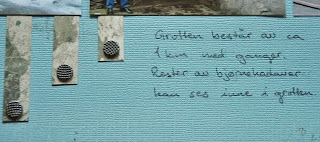 Grotten består av ca
1 km med ganger.
Rester av bjørnekadaver
kan ses inne i grotten.